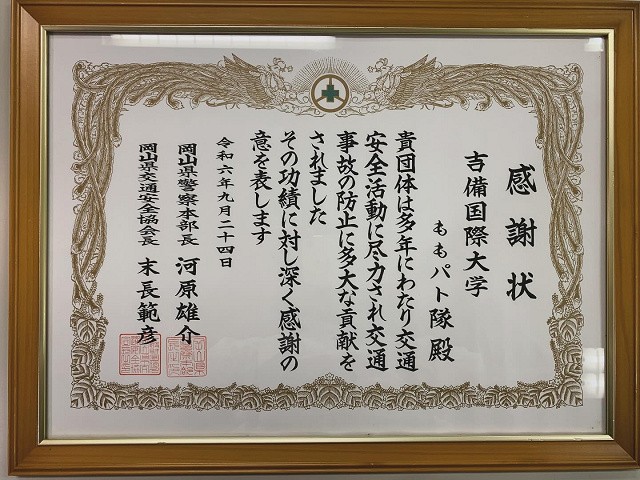 感謝状
吉備国際大学
ももパト隊 殿
貴団体は多年にわたり交通
安全活動に尽力され交通
事故の防止に多大な貢献を
されました
その功績に対し深く感謝の
意を表します
令和六年九月二十四日
岡山県警察本部長 河原雄介
岡山県交通安全協会長 末長範彦